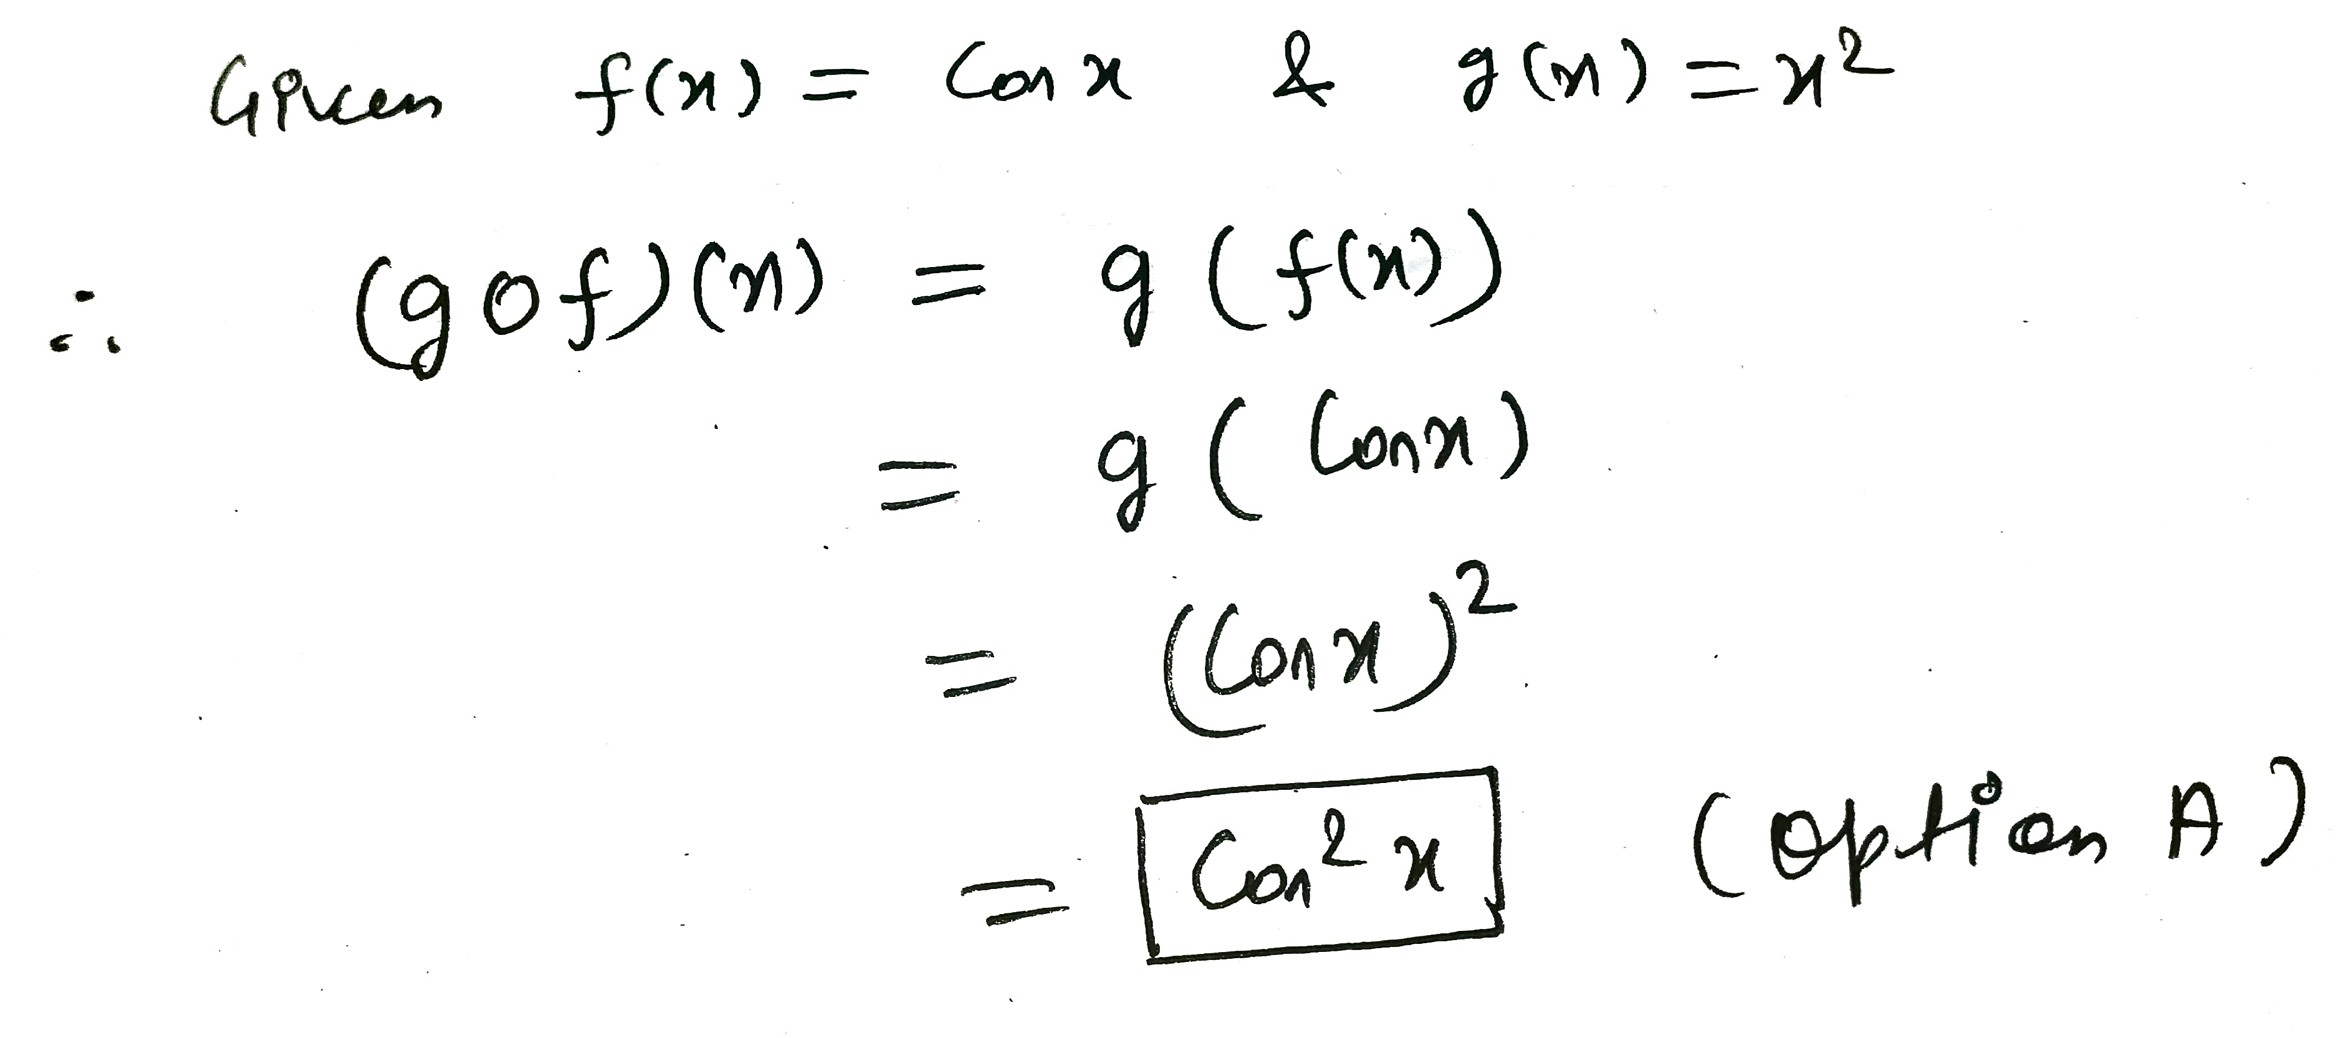 Given f(x) = Cos x & g(x) = x²
∴ (gof)(x) = g(f(x))
= g(Cosx)
= (Cosx)²
= Cos²x (Option A)